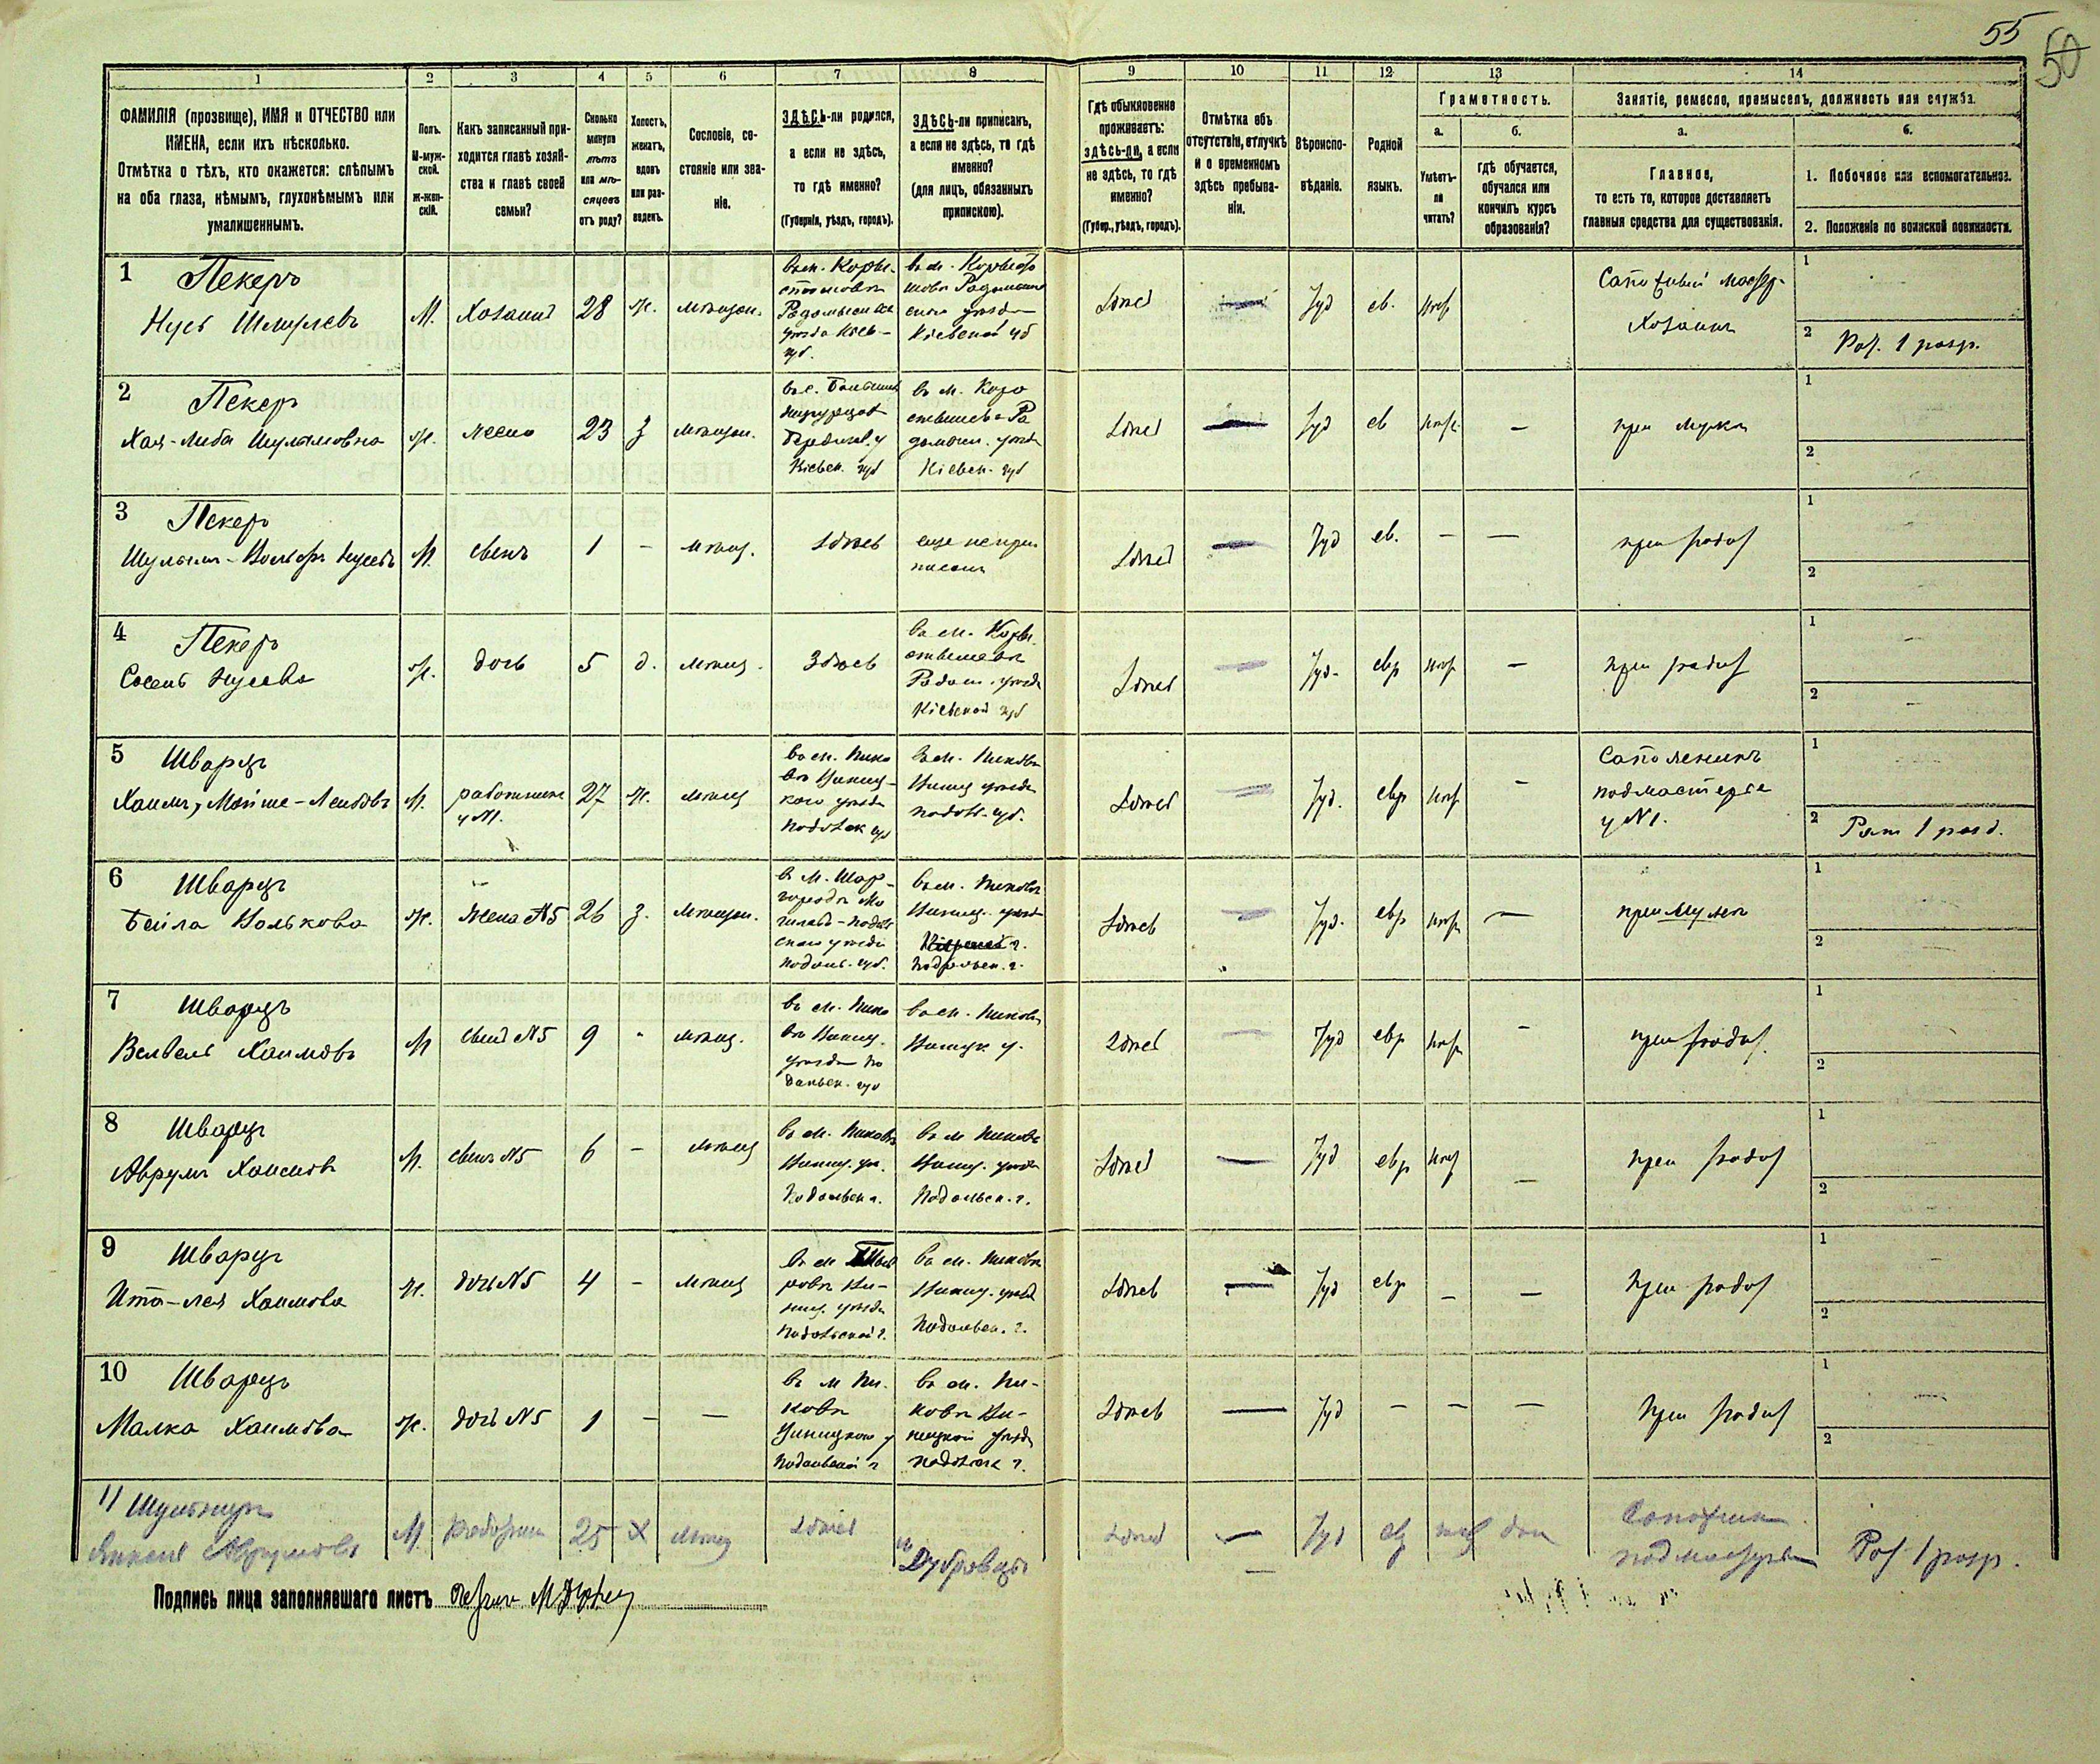 55
50
1
2
3
4
5
6
7
8
9
10
11
12
13
14
ФАМИЛІЯ (прозвище), ИМЯ и ОТЧЕСТВО или
ИМЕНА, если ихъ нѣсколько.
Отмѣтка о тѣхъ, кто окажется: слѣпымъ
на оба глаза, нѣмымъ, глухонѣмымъ или
умалишеннымъ.
Полъ.
М-муж-
ской.
Ж-жен-
скій.
Какъ записанный при-
ходится главѣ хозяй-
ства и главѣ своей
семьи?
Сколько
минуло
лѣтъ
или мѣ-
сяцевъ
отъ роду?
Холостъ,
женатъ,
вдовъ
или раз-
веденъ.
Сословіе, со-
стояніе или зва-
ніе.
ЗДѢСЬ-ли родился,
а если не здѣсь,
то гдѣ именно?
(Губернія, уѣздъ, городъ).
ЗДѢСЬ-ли приписанъ,
а если не здѣсь, то гдѣ
именно?
(для лицъ, обязанныхъ
припискою).
Гдѣ обыкновенно
проживаетъ:
здѣсь-ли, а если
не здѣсь, то гдѣ
именно?
(Губер., уѣздъ, городъ).
Отмѣтка объ
отсутствіи, отлучкѣ
и о временномъ
здѣсь пребыва-
ніи.
Вѣроиспо-
вѣданіе.
Родной
языкъ.
Грамотность.
а.
б.
Умѣетъ-
ли
читать?
гдѣ обучается,
обучался или
кончилъ курсъ
образованія?
Занятіе, ремесло, промыселъ, должность или служба.
а.
б.
Главное,
то есть то, которое доставляетъ
главныя средства для существованія.
1. Побочное или вспомогательное.
2. Положеніе по воинской повинности.
1 Пекеръ
Нусь Шмулевъ
М.
Хозяинъ
28
ж.
мѣщан.
Радомысльск
уѣзда Кіев-
губ.
Кіевской губ
Здѣсь
Іуд
ев.
нѣт
Сапожный мастер-
Хозяинъ
1
2 Рат. 1 разр.
2 Пекеръ
Хая-Либа Шулимовна
ж.
жена
23
з
мѣщан.
Бердичев. у
Кіевск. губ
Кіевск. губ
Здѣсь
Іуд
ев
нѣт
—
при мужѣ
1
2
3 Пекеръ
Шулимъ-Вольфъ Нусевъ
М.
сынъ
1
-
мѣщ.
Здѣсь
еще непри
писанъ
Здѣсь
Іуд
ев.
—
—
при родит
1
2
4 Пекеръ
Сосель Нусева
ж.
дочь
5
д.
мѣщ.
Здѣсь
Радом. уѣзда
Кіевской губ
Здѣсь
Іуд.
евр
нѣт
—
при родит
1
2
5 Шварцъ
Хаимъ, Мойше-Лейбовъ
М.
работникъ
у №1.
27
ж.
мѣщ
въ м. Пико
въ Виниц-
каго уѣзда
Подольск губ
въ м. Пиковъ
Виниц уѣзда
Подол. губ.
Здѣсь
Іуд.
евр
нѣт
—
Сапожникъ
подмастерье
у №1.
1
2 Рат 1 разр.
6 Шварцъ
Бейла Волькова
ж.
жена №5
26
з.
мѣщан.
въ м. Шар-
городѣ Мо
гилевъ-Подоль
скаго уѣзда
Подоль. губ.
въ м. Пиковъ
Виниц. уѣзд
Подольск. г.
Здѣсь
Іуд.
евр
нѣт
—
при мужѣ
1
2
7 Шварцъ
Велвель Хаимовъ
М
сынъ №5
9
-
мѣщ.
въ м. Пико
въ Виниц.
уѣзда По
дольск. губ
въ м. Пиковъ
Виницк у.
Здѣсь
Іуд
евр
нѣт
—
при родит.
1
2
8 Шварцъ
Аврумъ Хаимовъ
М.
сынъ №5
6
-
мѣщ
въ м. Пиковъ
Виниц. уѣ.
Подольск г.
въ м Пиковъ
Виниц. уѣзда
Подольск. г.
Здѣсь
—
Іуд
евр
нѣт
—
при родит
1
2
9 Шварцъ
Ита-Лея Хаимова
ж.
дочь №5
4
-
мѣщ
ниц. уѣзда
Подольской г.
въ м. Пиковъ
Виниц. уѣзд
Подольск. г.
Здѣсь
—
Іуд
евр
—
—
при родит
1
2
10 Шварцъ
Малка Хаимова
ж.
дочь №5
1
—
—
въ м Пи-
ковъ
Виницкаго у
Подольской г
въ м. Пи-
ковъ Ви-
ницкой уѣзда
Подольск г.
Здѣсь
—
Іуд
—
—
—
при родит
1
2
11
М
25
Х
мѣщ
Здѣсь
Здѣсь
—
Іуд
ев
дом
Сапожник
подмастерье
Рат 1 разр.
Подпись лица заполнявшаго листъ